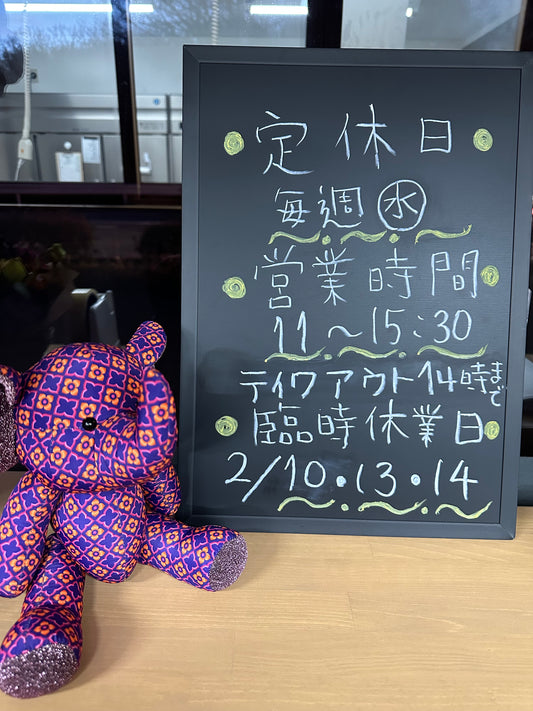 定休日
毎週㊌
営業時間
11～15:30
テイクアウト14時まで
臨時休業日
2/10・13・14